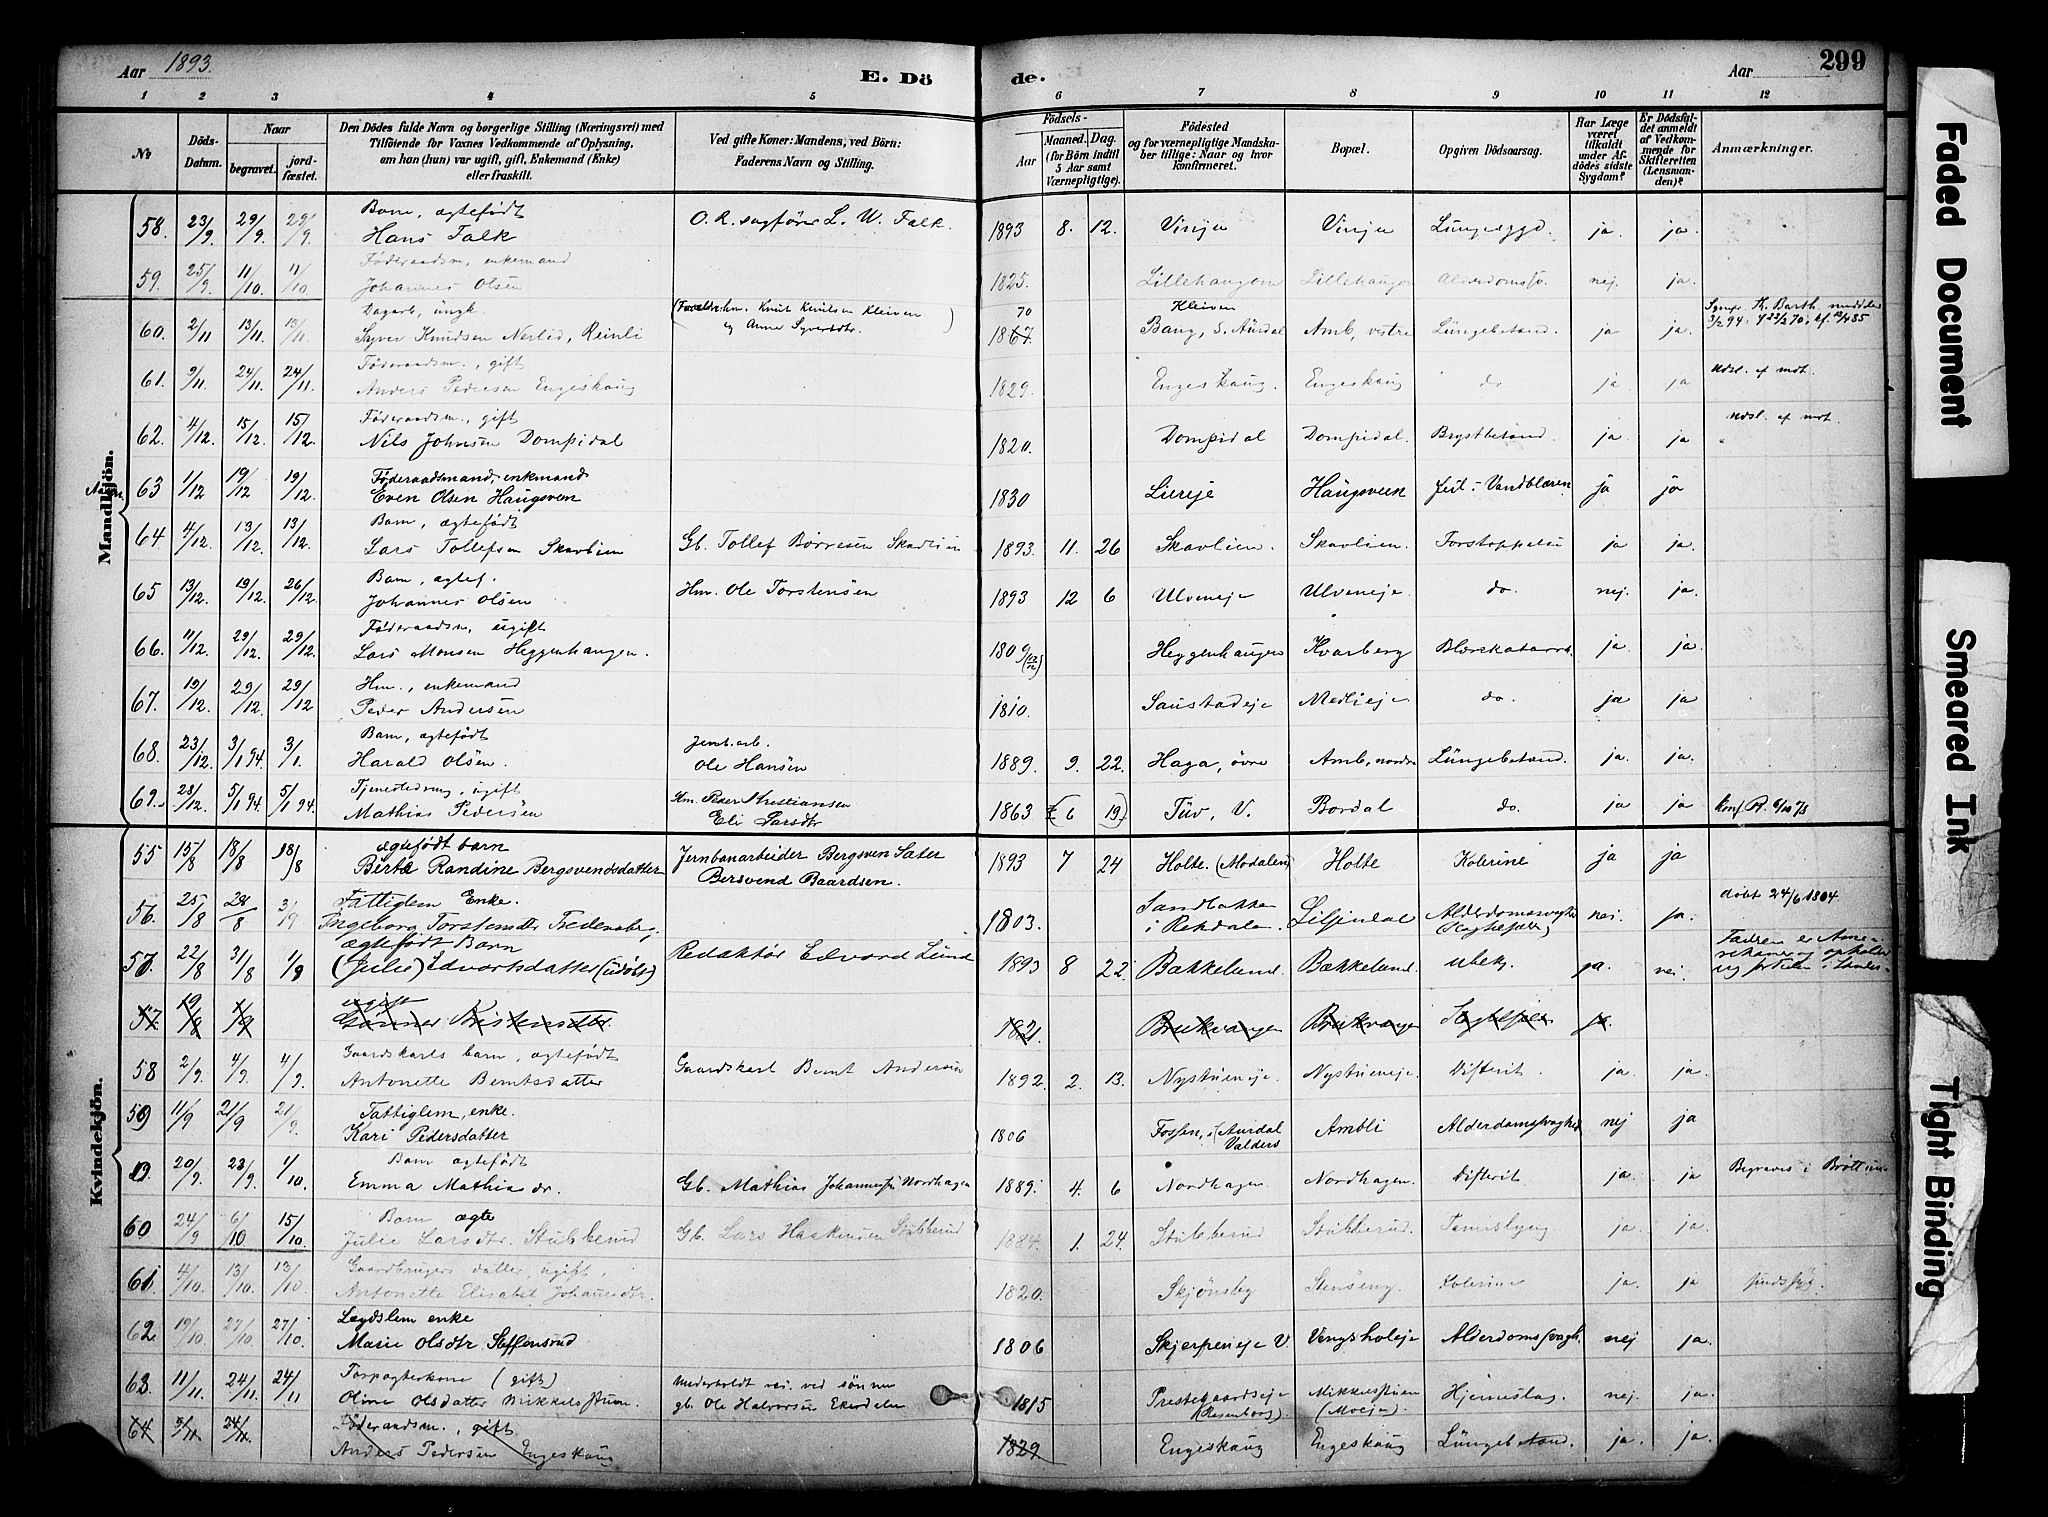 Aar 1893.
E. Döde.
Aar
299
1 2 3 4 5 6 7 8 9 10 11 12
No
Döds-Datum.
Naar
begravet.
jordfæstet.
Den Dödes fulde Navn og borgerlige Stilling (Næringsvei) med
Tilföiende for Voxnes Vedkommende af Oplysning,
om han (hun) var ugift, gift, Enkemand (Enke)
eller fraskilt.
Ved gifte Koner: Mandens, ved Börn:
Faderens Navn og Stilling.
Födsels-
Aar
Maaned. Dag.
(for Börn indtil
5 Aar samt
Værnepligtige).
Födested
og for værnepligtige Mandskaber tillige: Naar og hvor
konfirmeret.
Bopæl.
Opgiven Dödsaarsag.
Har Læge
været
tilkaldt
under Afdödes sidste
Sygdom?
Er Dödsfaldet anmeldt
af Vedkommende for
Skifteretten
(Lensmanden)?
Anmærkninger.
Mandkjön.
58. 23/9 29/9 29/9 Barn, ægtefödt
Hans Falk O. R. sagförer L. W. Falk. 1893 8. 12. Lungesygd. ja ja.
59. 25/9 11/10. 11/10 Föderaadsm., enkemand
Johannes Olsen 1825. Lillehaugen nej. ja
60. 2/11 13/11. 13/11. Dagarb., ungk.
Syver Knudsen Nerlid, Reinli (Forældre: hm. Knut Knutsen Kleiven
og Anne Syversdtr. ) 70
1867. Kleiven
Bang, S. Aurdal Amb, vestre Lungebetænd. ja ja
61. 9/11. 24/11. 24/11 Föderaadsm., gift
Anders Pedersen Engeskaug 1829. Engeskaug. Engeskaug do ja ja
62. 4/12. 15/12. 15/12. Föderaadsm., gift
Nils Johnsen Dompidal 1820. Dompidal Dompidal. Brystbetænd. ja ja
63 1/12 19/12 19/12 Föderaadsmand, enkmand
Even Olsen Haugsveen 1830 Liereje Haugsveen ja ja
64. 4/12. 13/12 13/12. Barn, ægtefödt
Lars Tollefsen Skavlien Gb. Tollef Börresen Skavlien 1893. 11. 26 Skavlien. Skavlien. Forstoppelse ja ja.
65 13/12. 19/12. 26/12. Barn, ægtef.
Johannes Olsen Hm. Ole Torstensen 1893 12 6 Ulveneje Ulveneje. do. nej. ja.
66. 11/12. 29/12. 29/12. Föderaadsm, ugift
Lars Monsen Heggenhaugen. 1809 Heggenhaugen Kvarberg Blærekatarrh. ja ja
67. 19/12. 29/12. 29/12 Hm., enkemand
Peder Andersen 1810. Saustadeje Medlieje do. ja ja
68. 23/12. 3/1 94. 3/1. Barn, ægtefödt
Harald Olsen. Jernb. arb.
Ole Hansen 1889. 9. 22. Haga, övre Amb, nordre Lungebetænd. ja ja.
69. 28/12. 5/1 94. 5/1 94 Tjenestedreng, ugift
Mathias Pedersen Hm. Peder Kristiansen
Eli Larsdtr 1863 6 19) Tuv, V. Bordal do. ja ja
Kvindekjön.
55 15/8 18/8 18/8 ægefödt barn
Berte Randine Bergsvendsdatter Jernbanarbeider Bergsven Sater
Bersvend Baardsen. 1893 7 24 Holte. (Modalen) Holte Kolerine ja ja
56. 25/8 28/8 3/9 Fattiglem Enke.
Ingeborg Torstensdtr Fredensberg. 1803. Sandbakken
i Rekdalen. Liljendal Alderdomssvaghed nei. ja. döbt 24/6 1804
57. 22/8 31/8 1/9 ægtefödt Barn
(Julie) Edvartsdatter (udöbt) Redaktör Edvard Lund 1893 8 22. Bækkelund. Bækkelund. ubek. ja. nei.
57. 19/8 1/9 ugift
Gunner Kristensdtr. 1821. Brukvangen Brukvangen ja.
58 2/9. 4/9. 4/9. Gaardskarls barn, ægtefödt
Antonette Berntsdatter Gaardskarl Bernt Andersen 1892. 2. 13. Nystueneje. Nystueneje. Difterit. ja. ja.
59 11/9 21/9 21/9. Fattiglem, enke.
Kari Pedersdatter 1806 Fossen, i (Aurdal
Valders Ambli Alderdomssvaghed nej ja
20/9. 23/9. 1/10. Barn ægtefödt
Emma Mathiasdr. Gb. Mathias Johannessen Nordhagen 1889. 4. 6 Nordhagen Nordhagen. Difterit ja. ja Begraves i Bröttum
60 24/9 6/10 15/10. Barn ægte
Julie Larsdtr. Stubberud Gb. Lars Haakensen Stubberud 1884. 1. 24. Stubberud Stubberud. ja. ja.
61 4/10. 13/10. 13/10. Gaardbrugers datter, ugift.
Antonette Elisabet Johannesdtr. 1820. Skjönsby Stenseng. Kolerine ja. ja sindssyg.
62 19/10. 27/10 27/10. Lægdslem enke
Marie Olsdtr Steffensrud 1806 Skjerpeneje V. Vengsholeje. Alderdomssvagh. nej ja.
63 11/11. 24/11. 24/11 Forpagterkone (gift)
Oline Olsdatter Mikkelsstuen. Underholdt ved sönnen
gb. Ole Halvorsen Ekerdalen 1815 Prestegaardseje
(Rosenborg). Mikkelsstuen
(Moejn). Hjerneslag. nej. ja.
64 5/11. 24/11. Föderaadsm., gift
Anders Pedersen Engeskaug 1829. Engeskaug Engeskaug Lungebetænd. ja. ja.
Faded Document
Smeared Ink
Tight Binding